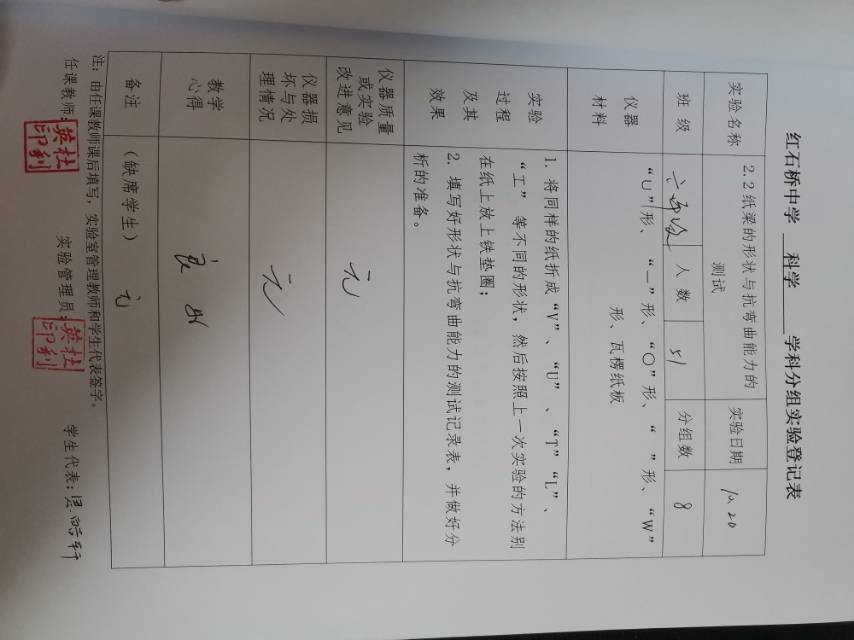 红石桥中学 科学 学科分组实验登记表
实验名称 2.2纸梁的形状与抗弯曲能力的测试 实验日期 10.20
班级 人数 51 分组数 8
仪器材料 “U”形、“一”形、“O”形、“ ”形、“W”
形、瓦楞纸板
实验过程及其效果
1. 将同样的纸折成“V”、“U”、“T”“L”、
“工”等不同的形状，然后按照上一次实验的方法别
在纸上放上铁垫圈；
2. 填写好形状与抗弯曲能力的测试记录表，并做好分
析的准备。
仪器质量或实验改进意见 无
仪器损坏与处理情况 无
教学心得 良好
备注 （缺席学生） 无
注：由任课教师课后填写，实验室管理教师和学生代表签字。
任课教师： 英杜印利 实验管理员： 英杜印利 学生代表：